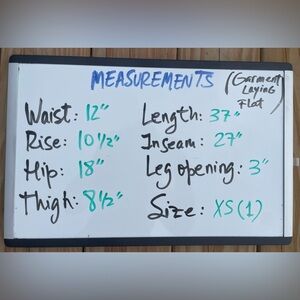 MEASUREMENTS (Garment Laying Flat)
Waist: 12" Length: 37"
Rise: 10 1/2" Inseam: 27"
Hip: 18" Leg opening: 3"
Thigh: 8 1/2" Size: XS (1)